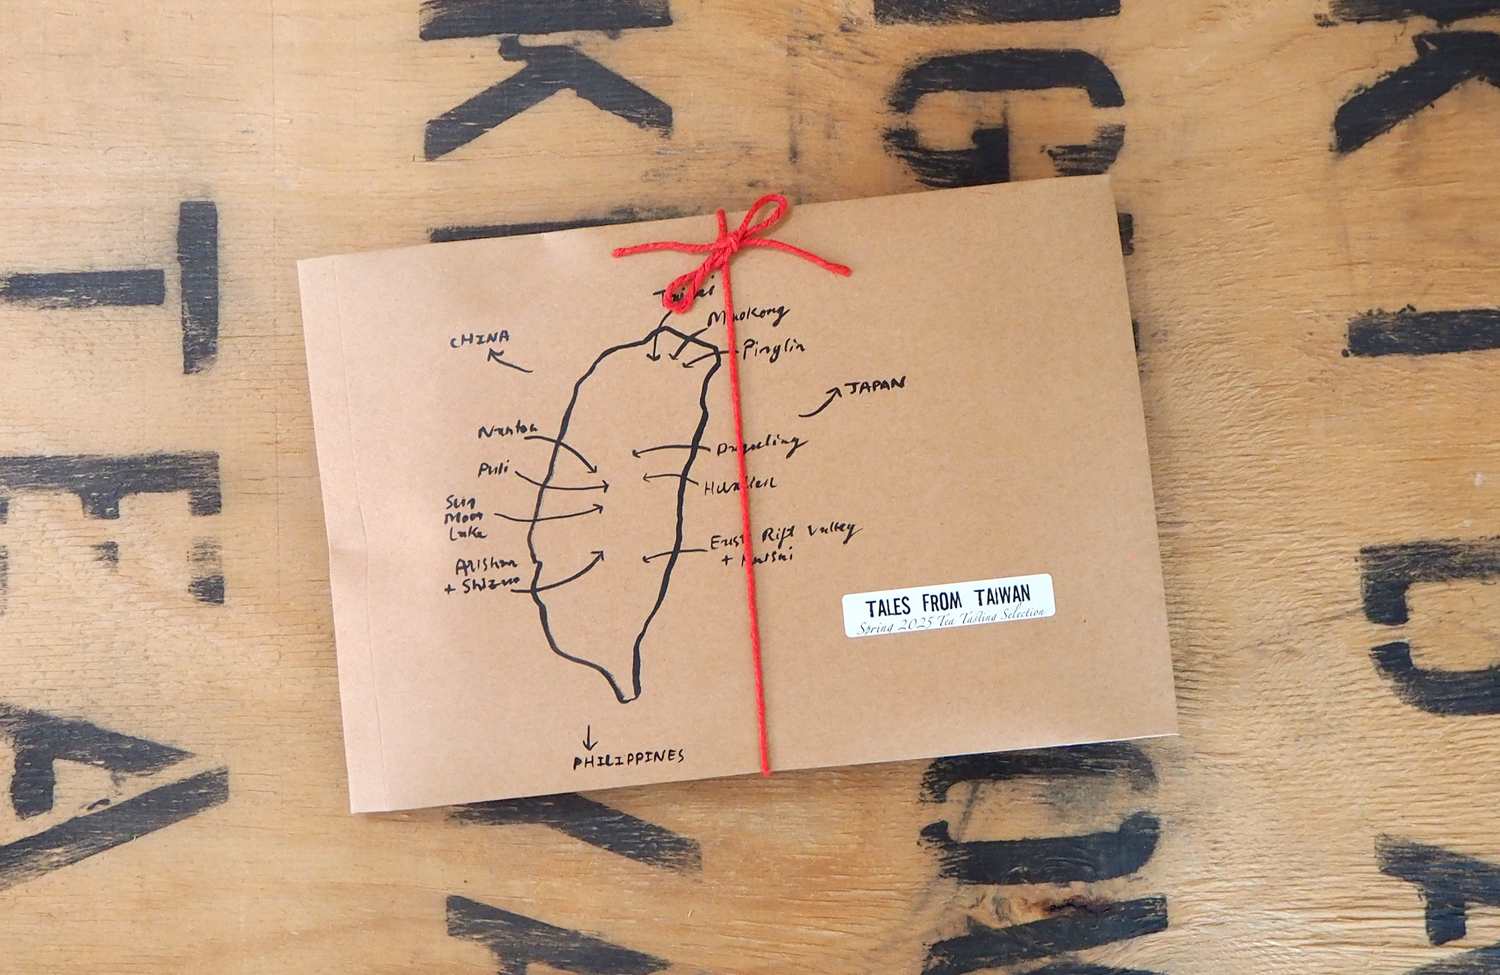 Maokong
Pinglin
CHINA
JAPAN
Nantou
Puli
Sun
Moon
Lake
Alishan
+ Shizuo
Hualien
East Rift Valley
+
PHILIPPINES
TALES FROM TAIWAN
Spring 2025 Tea Tasting Selection
TEA